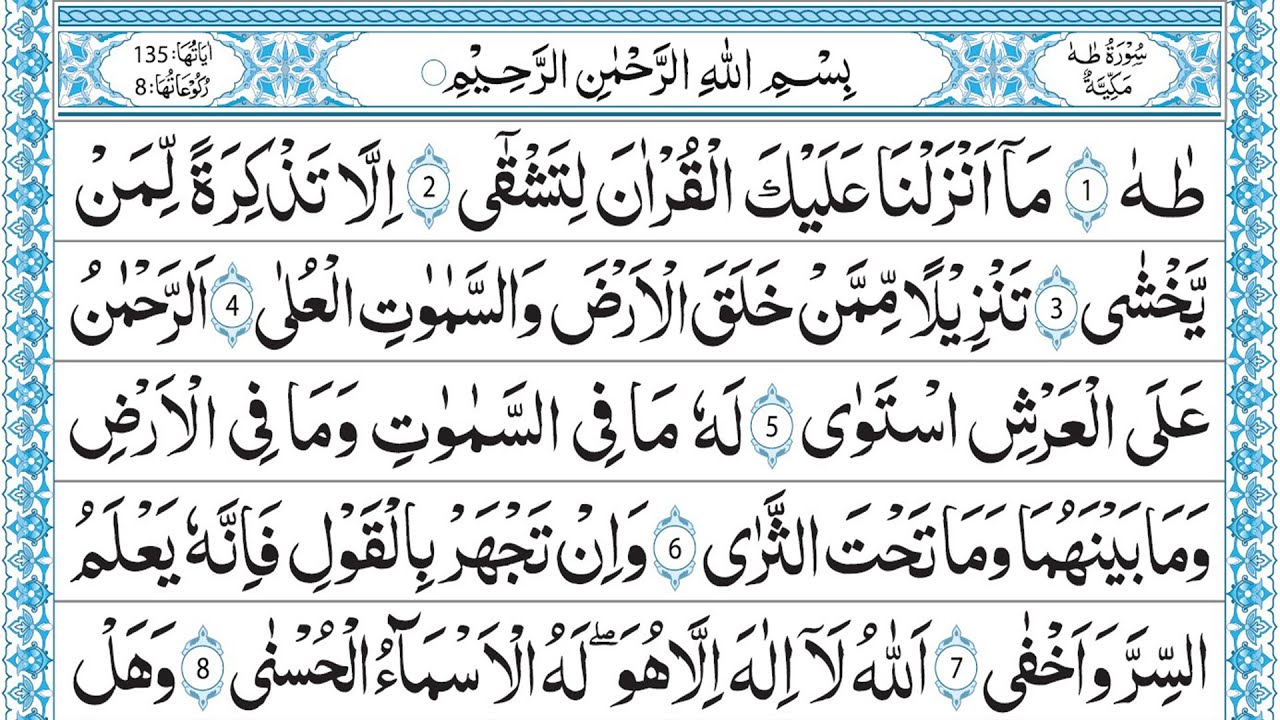 سُوْرَةُ طٰهٰ
مَكِّيَّةٌ
بِسْمِ اللّٰهِ الرَّحْمٰنِ الرَّحِيْمِ
اٰيَاتُهَا: 135
رُكُوْعَاتُهَا: 8
طٰهٰ 1 مَاۤ اَنْزَلْنَا عَلَيْكَ الْقُرْاٰنَ لِتَشْقٰۤى 2 اِلَّا تَذْكِرَةً لِّمَنْ
يَّخْشٰى 3 تَنْزِيْلًا مِّمَّنْ خَلَقَ الْاَرْضَ وَالسَّمٰوٰتِ الْعُلٰى 4 اَلرَّحْمٰنُ
عَلَى الْعَرْشِ اسْتَوٰى 5 لَهٗ مَا فِى السَّمٰوٰتِ وَمَا فِى الْاَرْضِ
وَمَا بَيْنَهُمَا وَمَا تَحْتَ الثَّرٰى 6 وَاِنْ تَجْهَرْ بِالْقَوْلِ فَاِنَّهٗ يَعْلَمُ
السِّرَّ وَاَخْفٰى 7 اَللّٰهُ لَاۤ اِلٰهَ اِلَّا هُوَ ۖ لَهُ الْاَسْمَآءُ الْحُسْنٰى 8 وَهَلْ